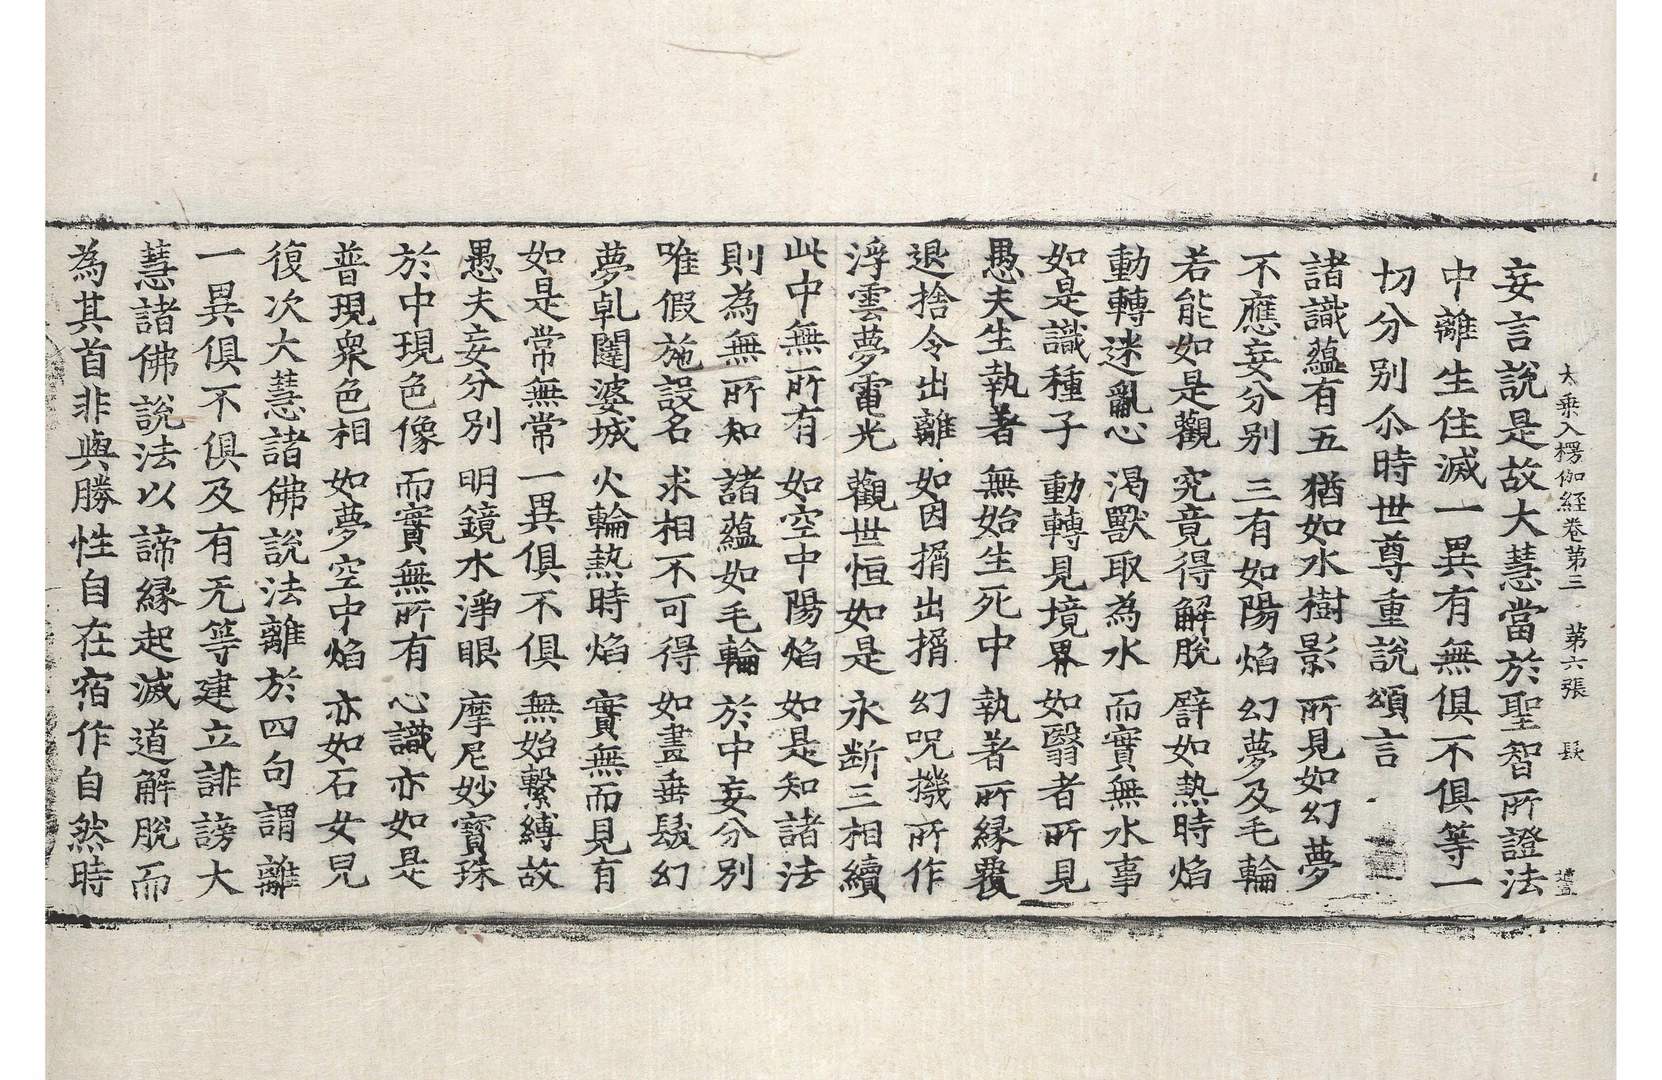 大乘入楞伽經卷第三 第六張 長
妄言說是故大慧當於聖智所證法
中離生住滅一異有無俱不俱等一
切分別尒時世尊重說頌言
諸識蘊有五 猶如水樹影 所見如幻夢
不應妄分別 三有如陽焰 幻夢及毛輪
若能如是觀 究竟得解脫 譬如熱時焰
動轉迷亂心 渴獸取為水 而實無水事
如是識種子 動轉見境界 如翳者所見
愚夫生執著 無始生死中 執著所緣覆
退捨令出離 如因㨝出㨝 幻呪機所作
浮雲夢電光 觀世恒如是 永断三相續
此中無所有 如空中陽焰 如是知諸法
則為無所知 諸蘊如毛輪 於中妄分別
唯假施設名 求相不可得 如畫垂髮幻
夢乹闥婆城 火輪熱時焰 實無而見有
如是常無常 一異俱不俱 無始繫縛故
愚夫妄分別 明鏡水淨眼 摩尼妙寶珠
於中現色像 而實無所有 心識亦如是
普現衆色相 如夢空中焰 亦如石女兒
復次大慧諸佛說法離於四句謂離
一異俱不俱及有无等建立誹謗大
慧諸佛說法以諦緣起滅道解脫而
為其首非與勝性自在宿作自然時